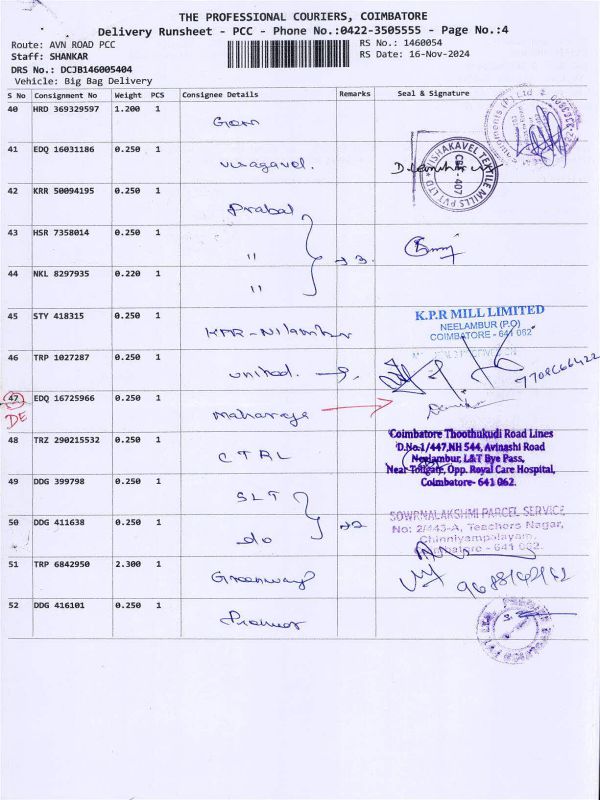 THE PROFESSIONAL COURIERS, COIMBATORE
Delivery Runsheet - PCC - Phone No.:0422-3505555 - Page No.:4
Route: AVN ROAD PCC
RS No.: 1460054
Staff: SHANKAR
RS Date: 16-Nov-2024
DRS No.: DCJB146005404
Vehicle: Big Bag Delivery
S No Consignment No Weight PCS Consignee Details Remarks Seal & Signature
40 HRD 369329597 1.200 1
41 EDQ 16031186 0.250 1
VISHAKAVEL TEXTILE MILLS PVT LTD
CBE - 407
42 KRR 50094195 0.250 1 Prabal
43 HSR 7358014 0.250 1 "
→ 3.
44 NKL 8297935 0.220 1 "
45 STY 418315 0.250 1 KPR-Nilambur
K.P.R MILL LIMITED
NEELAMBUR (P.O)
COIMBATORE - 641 062
46 TRP 1027287 0.250 1 United.
47 EDQ 16725966 0.250 1 Maharaja
DE
48 TRZ 290215532 0.250 1 CTRL
Coimbatore Thoothukudi Road Lines
D.No.1/447,NH 544, Avinashi Road
Neelambur, L&T Bye Pass,
Near Tollgate, Opp. Royal Care Hospital,
Coimbatore- 641 062.
49 DDG 399798 0.250 1 SLT
50 DDG 411638 0.250 1 do
SOWRNALAKSHMI PARCEL SERVICE
No: 2/443-A, Teachers Nagar,
Chinniyampalayam,
Coimbatore - 641 062.
51 TRP 6842950 2.300 1 Greenway
52 DDG 416101 0.250 1